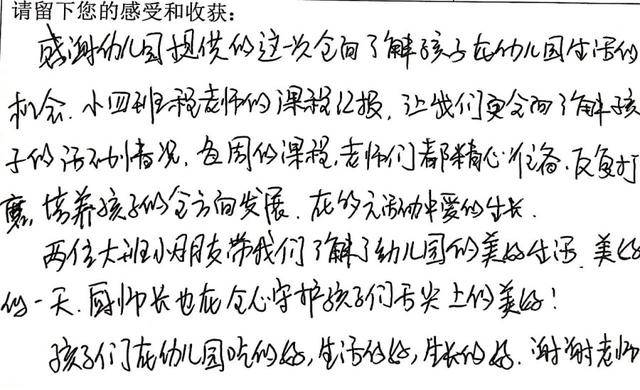 请留下您的感受和收获：
感谢幼儿园提供的这一次全面了解孩子在幼儿园生活的
机会。小四班程老师的课程汇报，让我们更全面了解孩
子的活动情况，每周的课程，老师们都精心准备，反复打
磨，培养孩子的全方面发展，在多元活动中爱的生长。
两位大班小朋友带我们了解了幼儿园的美好生活，美好
的一天，厨师长也在全心守护孩子们舌尖上的美好！
孩子们在幼儿园吃的好，生活的好，生长的好，谢谢老师